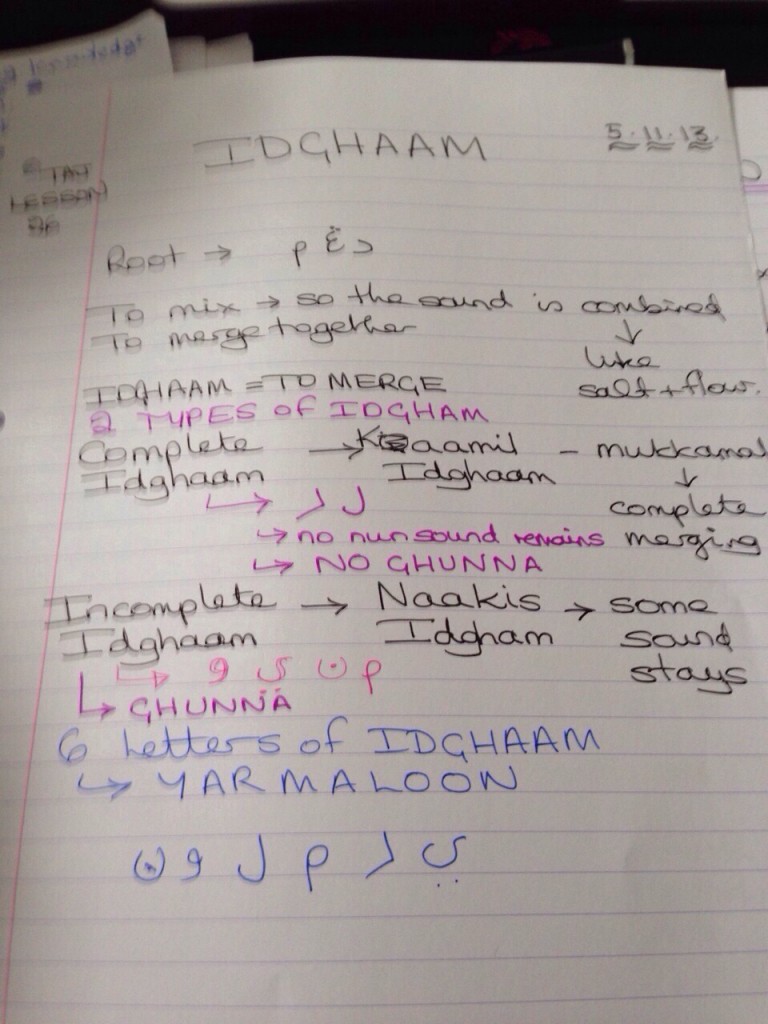 knowledge
IDGHAAM
5.11.13
TAJ
LESSON
Root → د غ م
To mix → so the sound is combined
To merge together
↓
like
salt + flour.
IDGHAAM = TO MERGE
2 TYPES OF IDGHAM
Complete → Kaamil - mukkamal
Idghaam Idghaam ↓
complete
merging
↳ ل ر
↳ no nun sound remains
↳ NO GHUNNA
Incomplete → Naakis → some
Idghaam Idgham sound
stays
↳ و ي ن م
↳ GHUNNA
6 Letters of IDGHAAM
↳ YARMALOON
ي ر م ل و ن